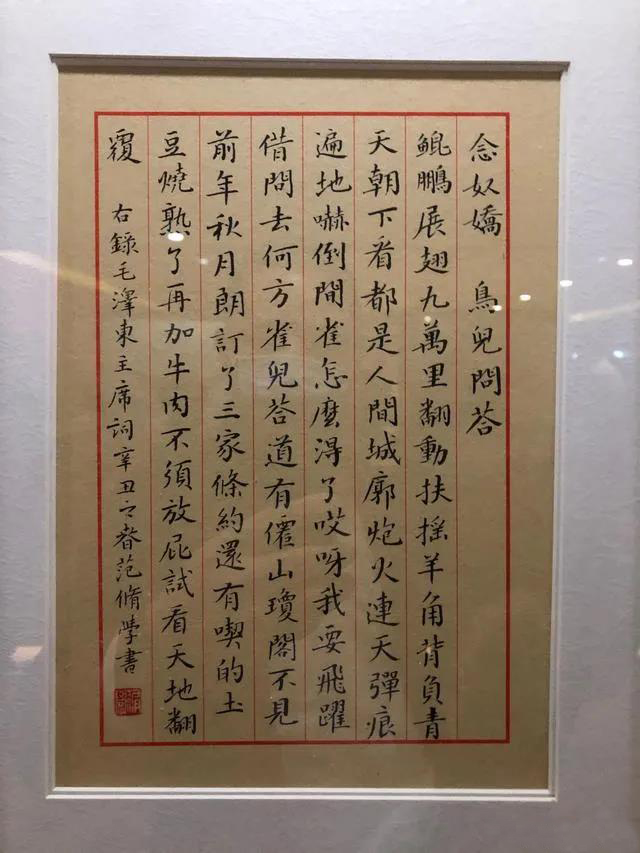 念奴嬌 鳥兒問答
鯤鵬展翅九萬里翻動扶搖羊角背負青
天朝下看都是人間城廓炮火連天彈痕
遍地嚇倒間雀怎麼得了哎呀我要飛躍
借問去何方雀兒荅道有僊山瓊閣不見
前年秋月朗訂了三家條約還有喫的土
豆燒熟了再加牛肉不須放屁試看天地翻
覆 右錄毛澤東主席詞辛丑之春范脩學書